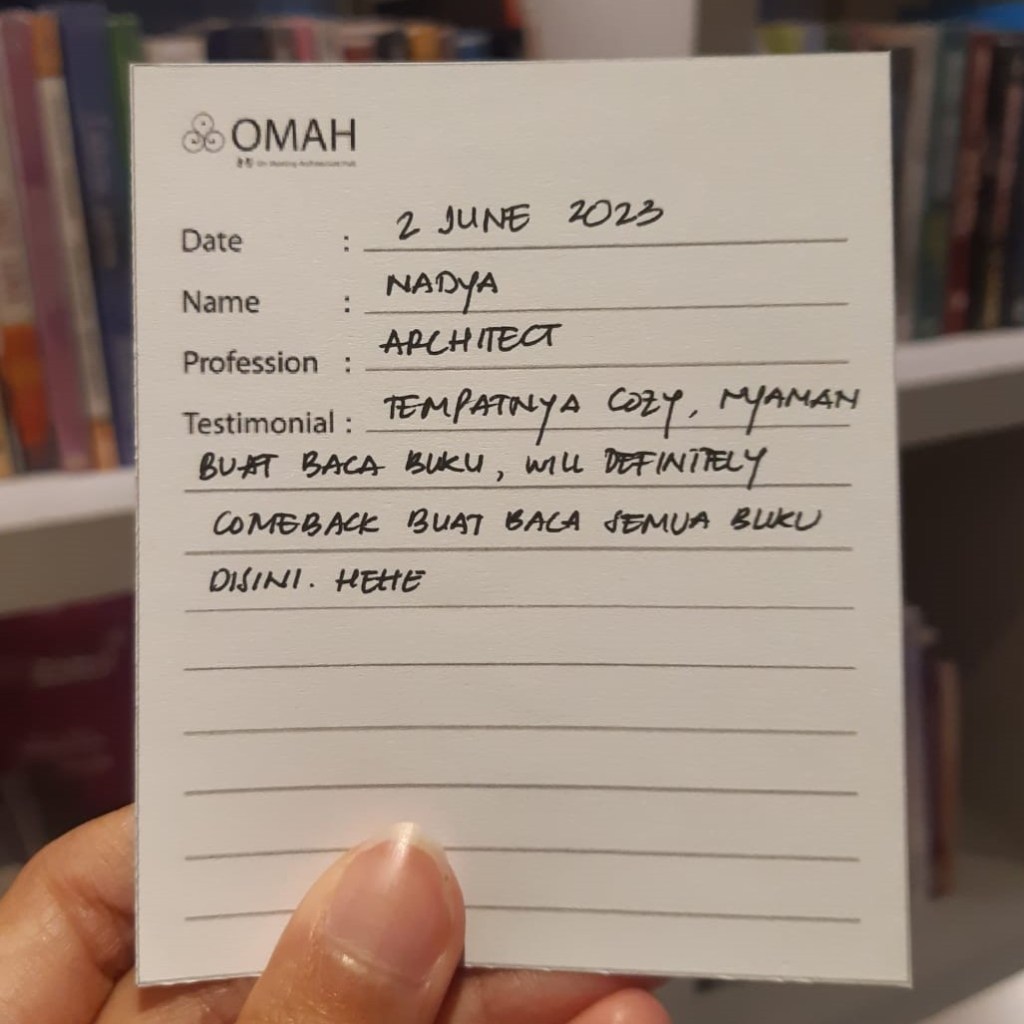 OMAH
Date : 2 JUNE 2023
Name : NADYA
Profession : ARCHITECT
Testimonial : TEMPATNYA COZY, NYAMAN
BUAT BACA BUKU, WILL DEFINITELY
COMEBACK BUAT BACA SEMUA BUKU
DISINI. HEHE